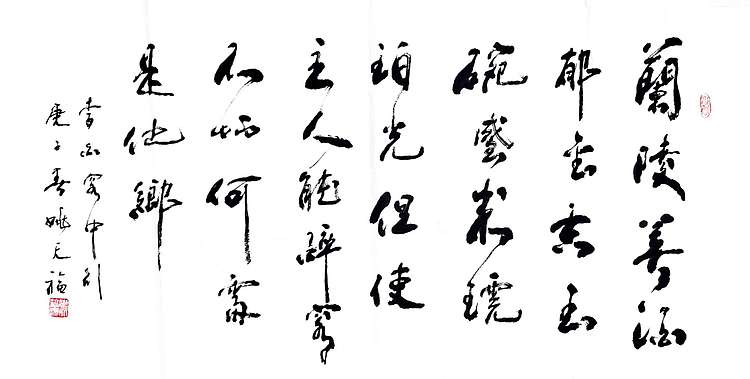 蘭陵美酒
郁金香玉
碗盛來琥
珀光但使
主人能醉客
不知何處
是他鄉
李白客中行
庚子春姚